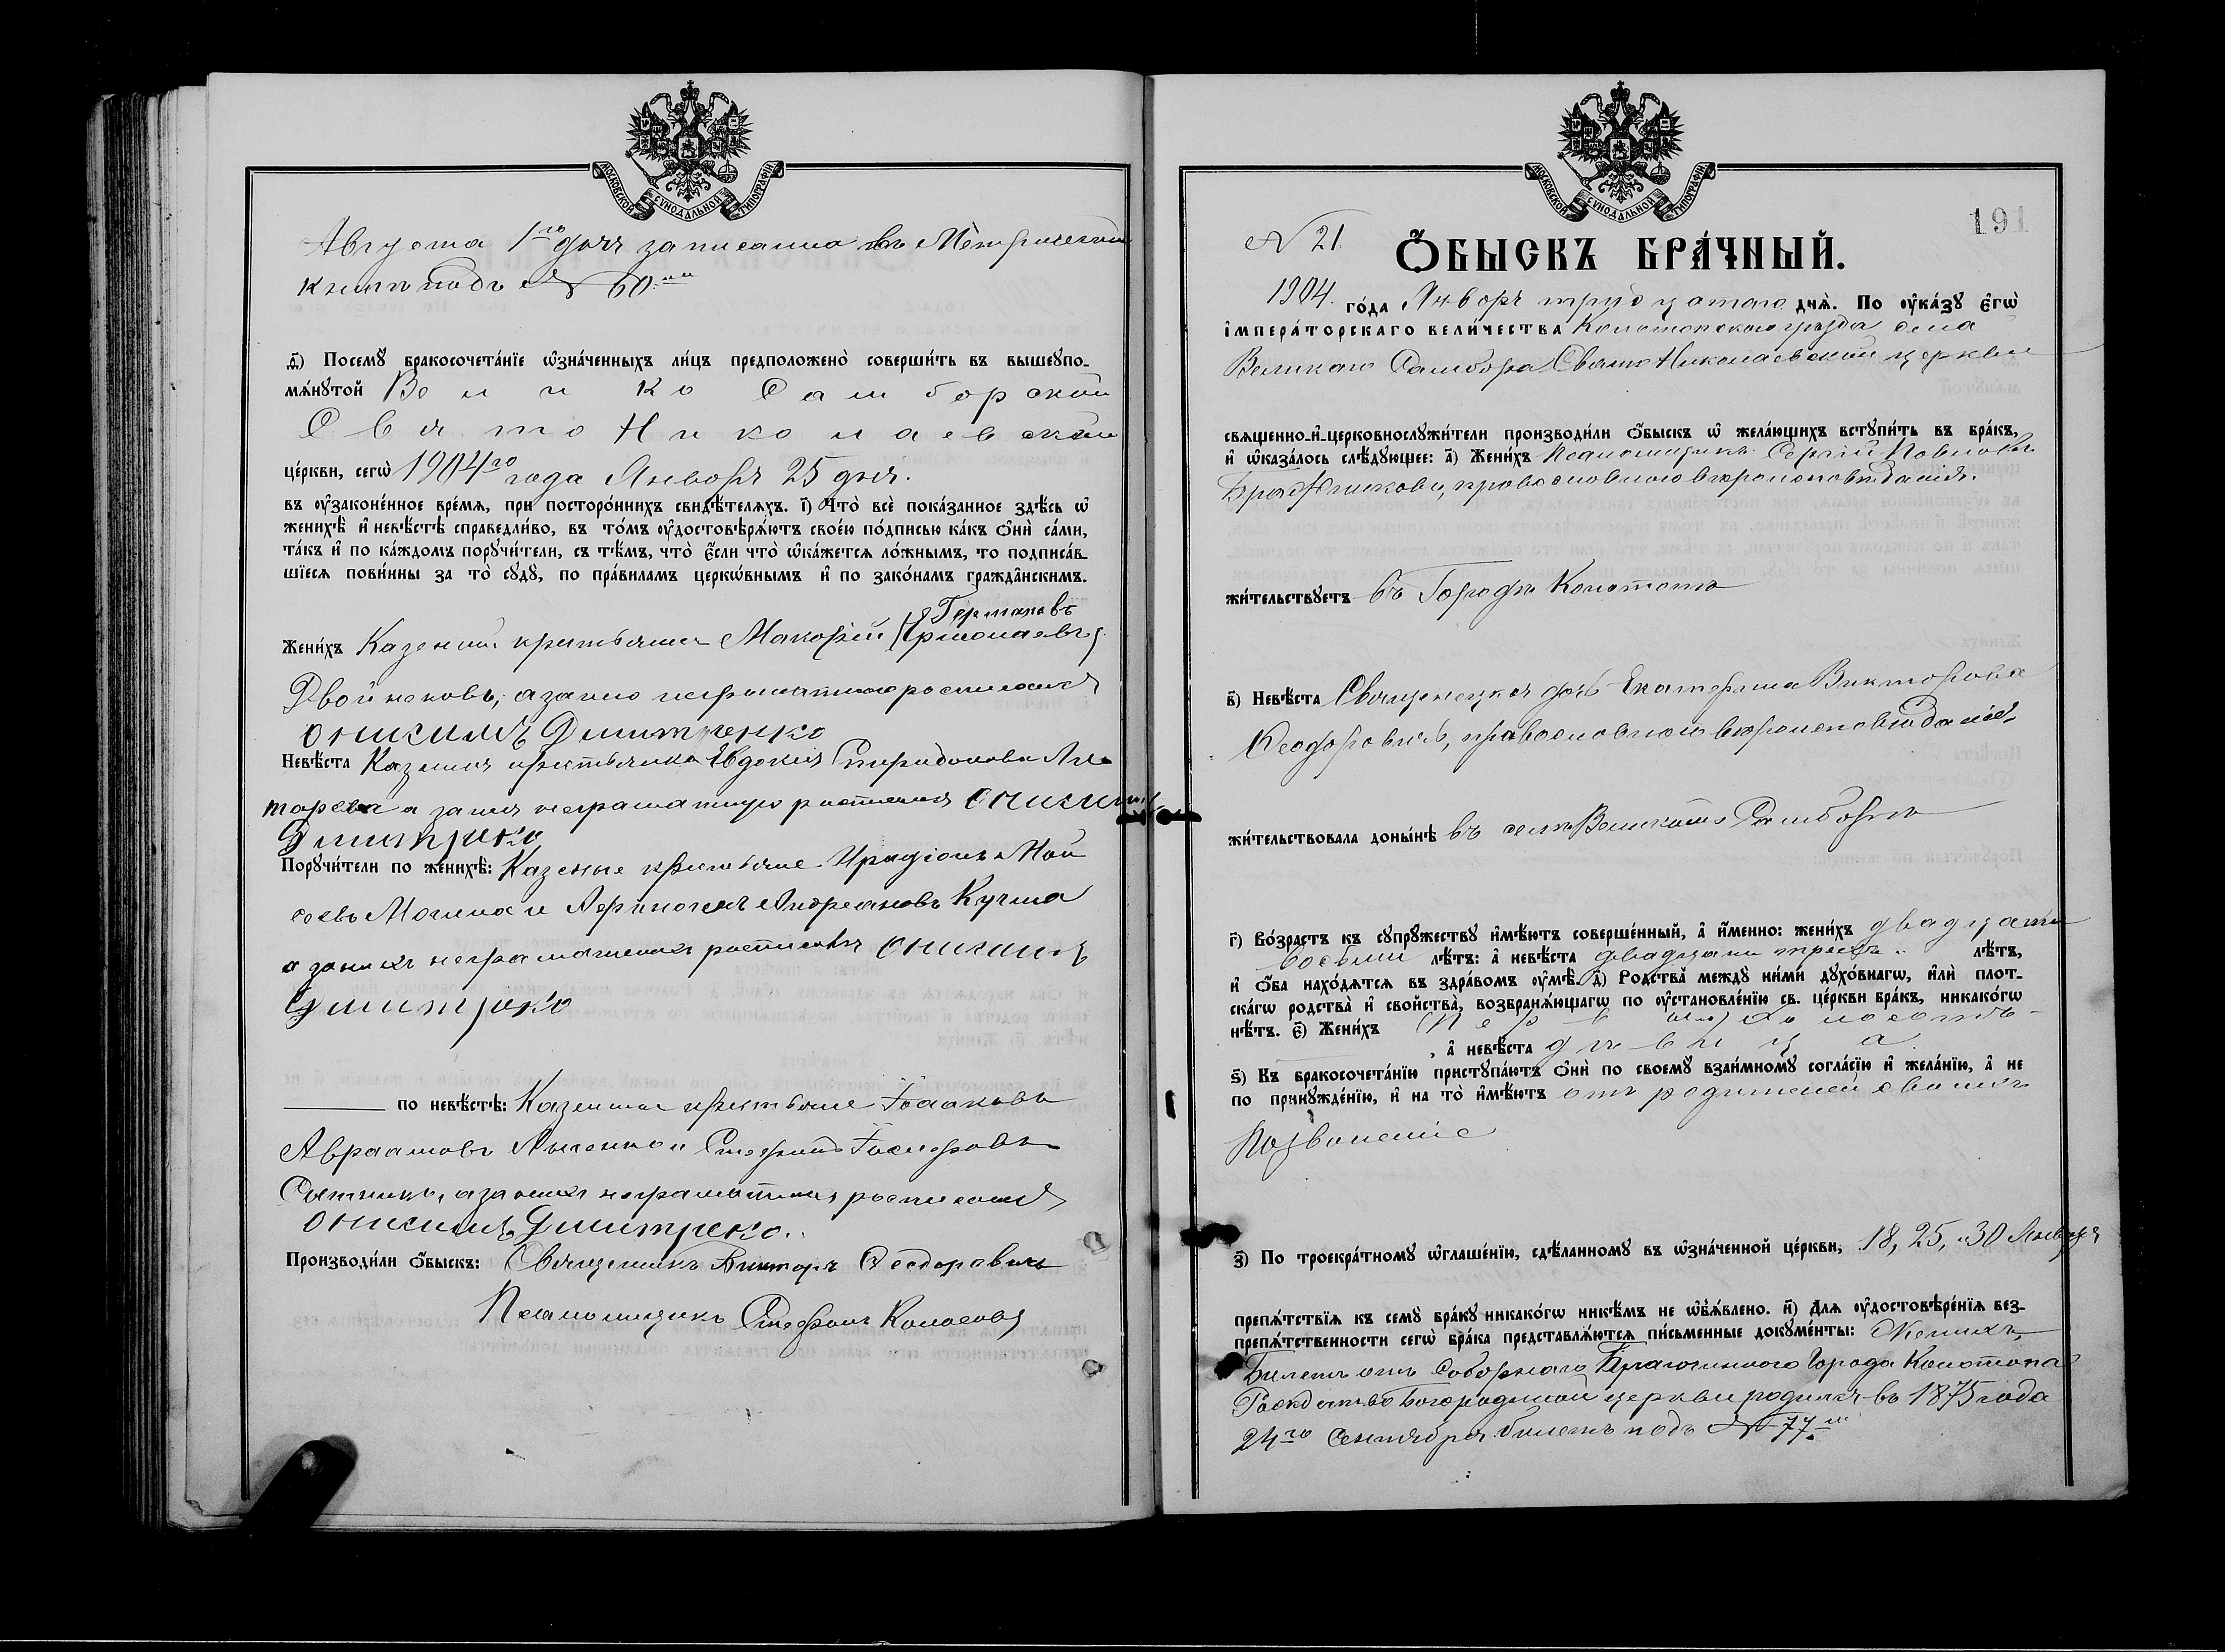 МОСКОВСКОЙ СУНОДАЛЬНОЙ ТИПОГРАФІИ
Августа 1го дня записана въ Метрической
книгѣ подъ № 60мъ
д҃) Посемꙋ бракосочета́нїе ѡ҆зна́ченныхъ ли́цъ предположено̀ соверши́ть въ вышеꙋпо-
мѧ́нꙋтой Велико Самборской
Свято Николаевской
це́ркви, сегѡ̀ 1904го года Января 25 дня.
въ ᲂу҆зако́не́нное вре́мѧ, при посторо́ннихъ свидѣ́телѧхъ. і҃) Что̀ всѐ пока́занное здѣ́сь ѡ҆
женихѣ̀ и҆ невѣ́стѣ справедли́во, въ то́мъ ᲂу҆достовѣрѧ́ютъ свое́ю по́дписью ка́къ ѻ҆нѝ са́ми,
та́къ и҆ по ка́ждомъ порꙋчи́тели, съ тѣ́мъ, что̀ є҆́сли что̀ ѡ҆ка́жетсѧ ло́жнымъ, то подписа́в-
шїесѧ пови́нны за то̀ сꙋдꙋ̀, по пра́виламъ церкѡ́внымъ и҆ по зако́намъ гражда̑нскимъ.
Германовъ
Жени́хъ Казенный крестьянинъ Макарій (Ермолаевъ)
Двойнековъ, а за него неграмотнаго росписался
Онисимъ Димитренко
Невѣ́ста Казенная крестьянка Евдокія Спиридонова
а за нея неграмотную росписался Онисимъ
Димитренко
Порꙋчи́тели по женихѣ̀: Казеные крестьяне Иродіонъ Мои
сеевъ Могила и Андреановъ Кучма
а за нихъ неграмотныхъ росписался Онисимъ
Димитренко
по невѣ́стѣ: Казенные крестьяне Іоаковъ
Авраамовъ и Стефанъ Іосифовъ
Сытникъ, а за нихъ неграмотныхъ росписался
Онисимъ Димитренко.
Производи́ли ѻ҆́быскъ: Священникъ Викторъ Ѳеодоровичъ
Псаломщикъ Стефанъ Колосовъ
МОСКОВСКОЙ СУНОДАЛЬНОЙ ТИПОГРАФІИ
191
№ 21.
Ѻ҆́БЫСКЪ БРА́ЧНЫЙ.
1904. го́да Января тридцатаго днѧ̀. По ᲂу҆ка́зꙋ є҆гѡ̀
і҆мпера́торскаго вели́чества Конотопскаго уѣзда села
Великаго Самбора Свято Николаевской церкви
свѧщенно-и҆-церковнослꙋжи́тели производи́ли ѻ҆́быскъ ѡ҆ жела́ющихъ встꙋпи́ть въ бра́къ,
и҆ ѡ҆каза́лось слѣ́дꙋющее: а҃) Жени́хъ Псаломщикъ Сергій Павловъ
православнаго вѣроисповѣданія.
жи́тельствꙋетъ въ Городѣ Конотопѣ
в҃) Невѣ́ста Священника дочь Екатерина Викторова
Ѳеодоровичъ, православнаго вѣроисповѣданія
жи́тельствовала доны́нѣ въ селѣ Великомъ Самборѣ
г҃) Во́зрастъ къ сꙋпрꙋ́жествꙋ и҆мѣ́ютъ соверше́нный, а҆ и҆́менно: жени́хъ двадцати
восьми лѣ́тъ: а҆ невѣ́ста двадцати трехъ лѣ́тъ,
и҆ ѻ҆́ба нахо́дѧтсѧ въ здра́вомъ ᲂу҆мѣ̀. д҃) Родства̀ междꙋ ни́ми дꙋхо́внагѡ, и҆лѝ плот-
ска́гѡ родства̀ и҆ свойства̀, возбранѧ́ющагѡ по ᲂу҆становле́нїю св. це́ркви бра́къ, никако́гѡ
нѣ́тъ. є҃) Жени́хъ холостъ
, а҆ невѣ́ста дѣвица
ѕ҃) Къ бракосочета́нїю пристꙋпа́ютъ ѻ҆нѝ по своемꙋ̀ взаи́мномꙋ согла́сїю и҆ жела́нїю, а҆ не
по принꙋжде́нїю, и҆ на то̀ и҆мѣ́ютъ отъ родителей своихъ
позволеніе
з҃) По троекра́тномꙋ ѡ҆глаше́нїю, сдѣ́ланномꙋ въ ѡ҆зна́ченной це́ркви, 18, 25, и 30 Января
препѧ́тствїѧ къ семꙋ̀ бра́кꙋ никако́гѡ никѣ́мъ не ѡ҆б̾ѧ́влено. и҃) Для ᲂу҆достовѣре́нїѧ без-
препѧ́тственности сегѡ̀ бра́ка представлѧ́ютсѧ пи́сьменные докꙋме́нты: Женихъ,
Билетъ отъ Соборнаго Благочиннаго Города Конотопа
Рождество Богородичной церкви родился въ 1875 года
24го Сентября билетъ подъ № 77мъ